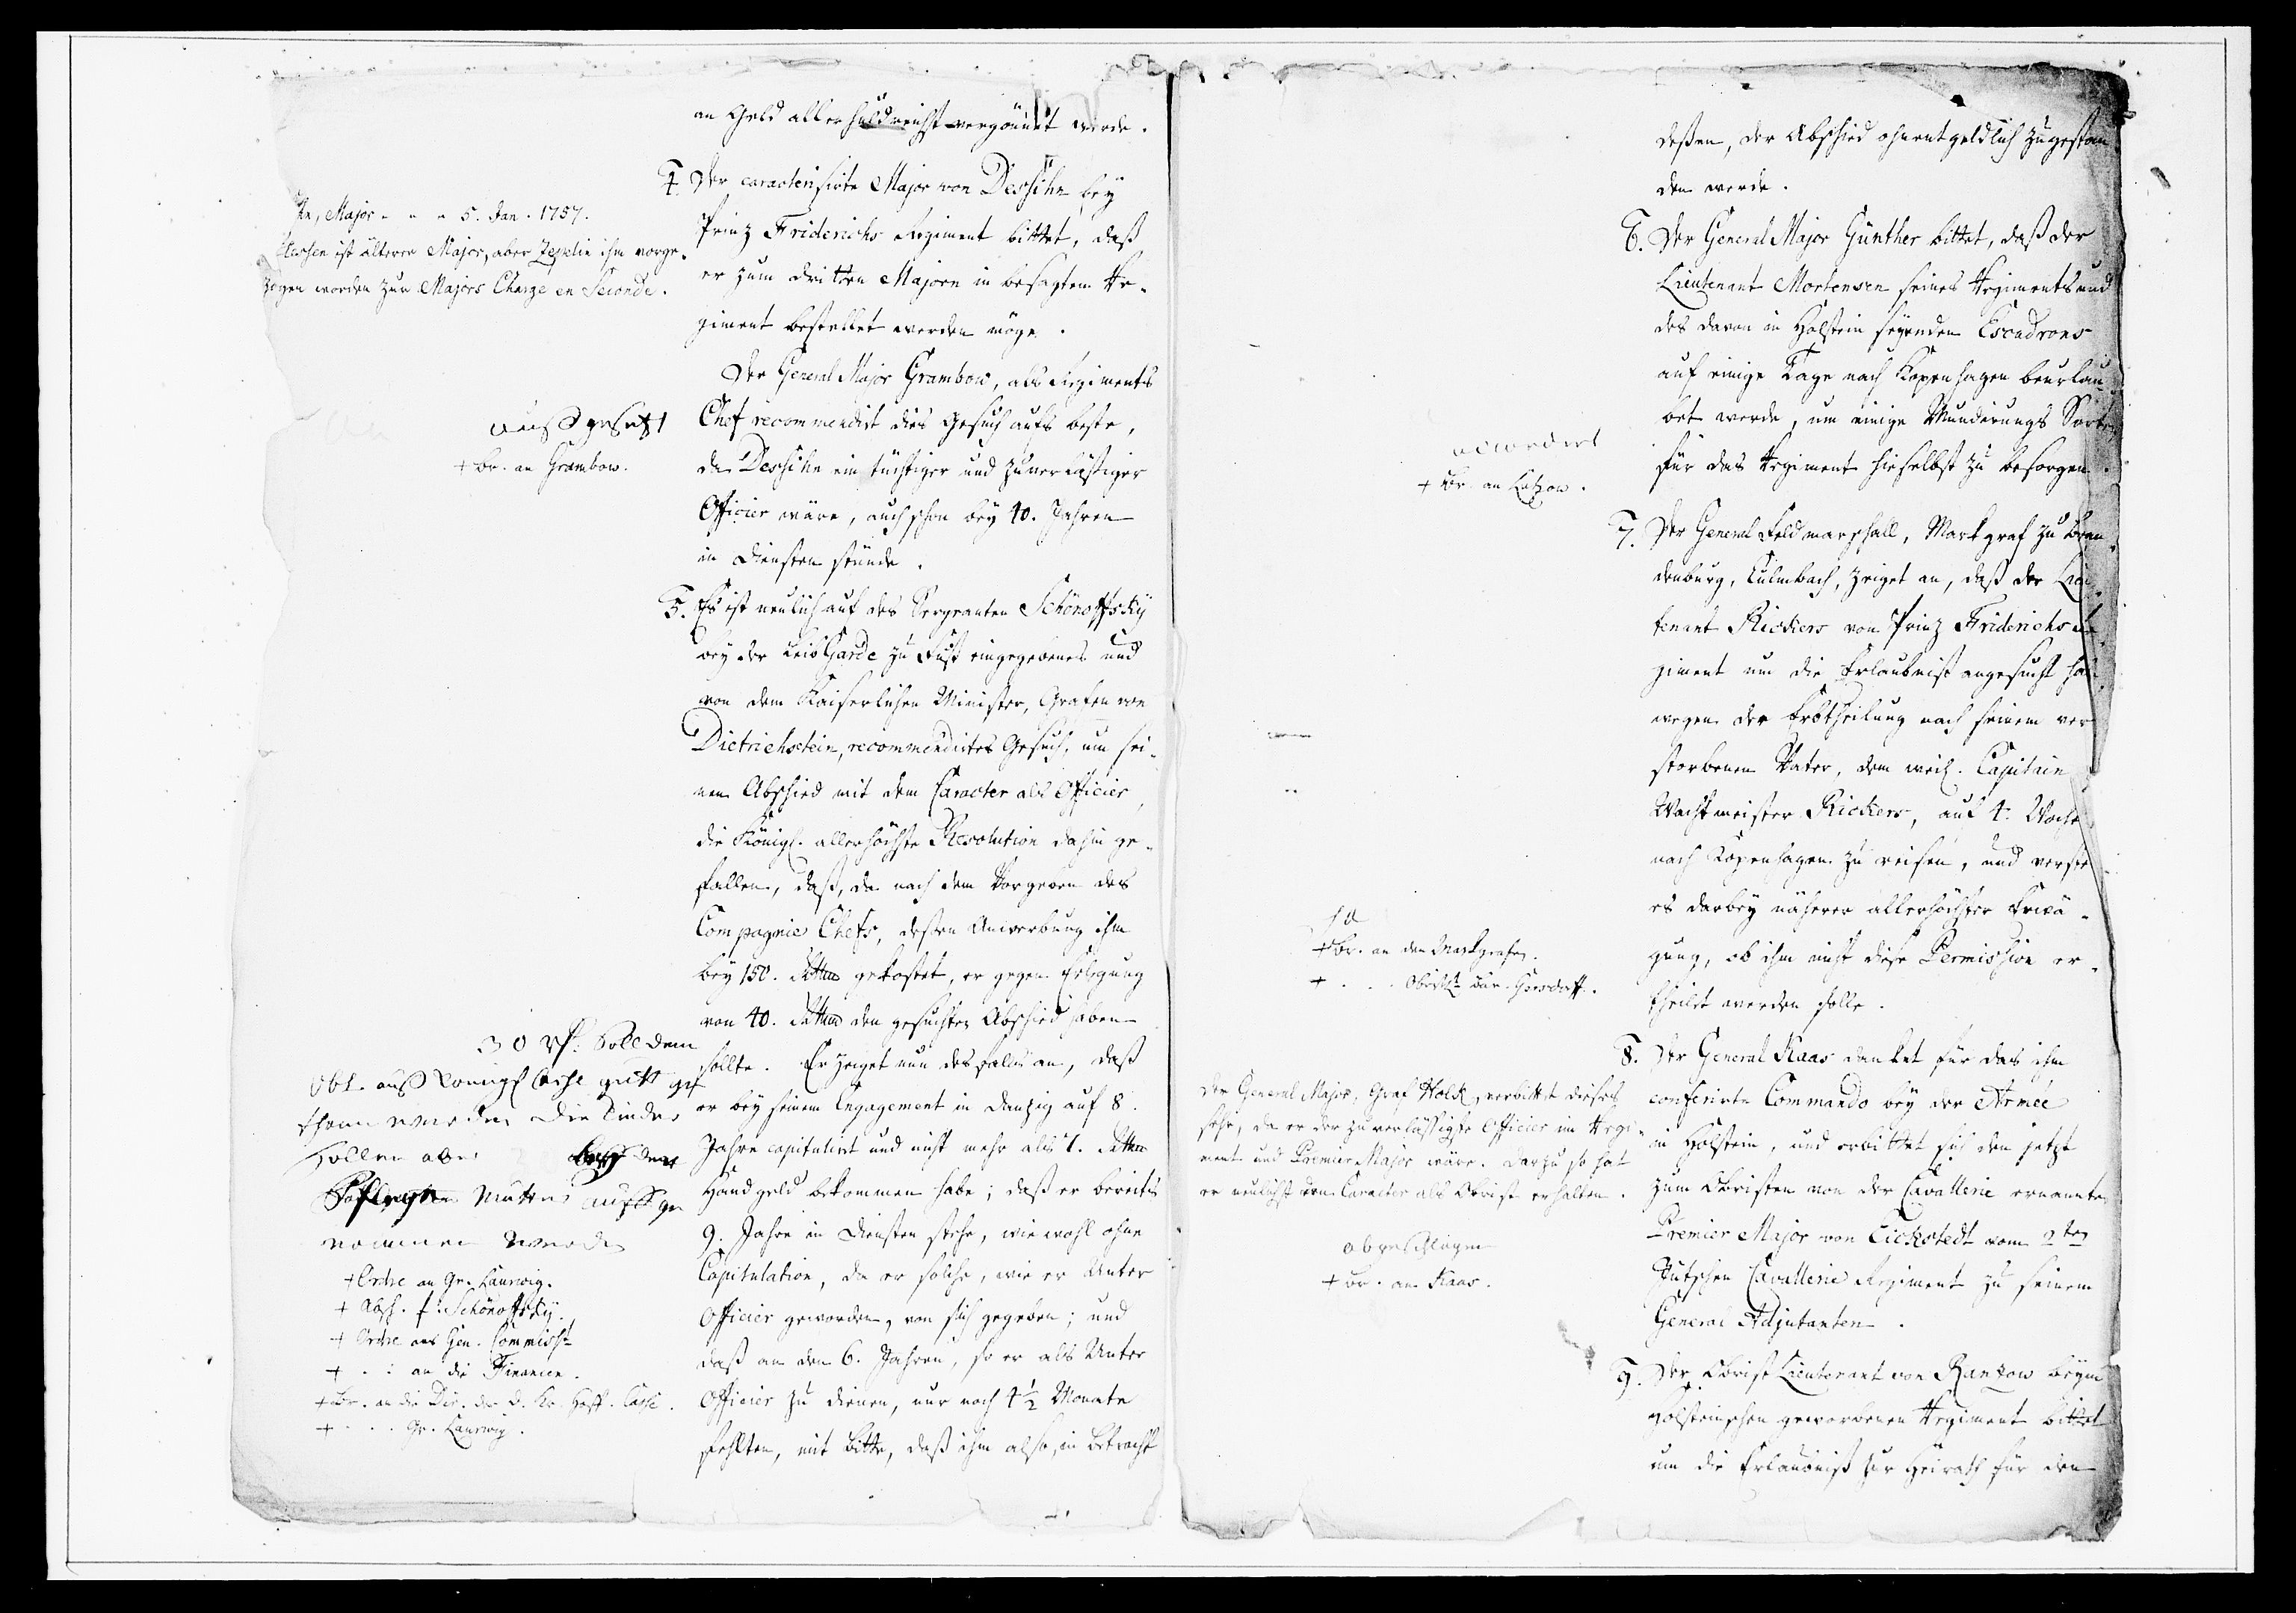 an Geld allerhuldreichst vergönnet werde.
4. Der caracterisirte Major von Dessihn bey
Prinz Friderichs Regiment bittet, daß
er zum dritten Majorn in besagtem Re-
giment bestellet werden möge.
Der General Major Grambow, als Regiments
Chef recommendirt dies Gesuch aufs beste,
da Dessihn ein tüchtiger und zuverläßiger
Officier wäre, auch schon bey 40. Jahren
in Diensten stünde.
5. Es ist neulich auf des Sergeanten Schönoffsky
bey der Leib Garde zu Fuß eingegebenes und
von dem Kaiserlichen Minister, Grafen von
Dietrichstein, recommendirtes Gesuch, um sei-
nen Abschied mit dem Caracter als Officier,
die Königl. allerhöchste Resolution dahin ge-
fallen, daß, da nach dem Vorgeben des
Compagnie Chefs, deßen Anwerbung ihm
bey 150. Rthlr gekostet, er gegen Erlegung
von 40. Rthlr den gesuchten Abschied haben
sollte. Er zeiget nun desfalls an, daß
er bey seinem Engagement in Danzig auf 8.
Jahre capitulirt und nicht mehr als 7. Rthlr
Handgeld bekommen habe; daß er bereits
9. Jahre in Diensten stehe, wiewohl ohne
Capitulation, da er solche, wie er Unter
Officier geworden, von sich gegeben; und
daß an den 6. Jahren, so er als Unter
Officier zu dienen, nur noch 4 1/2 Monate
fehlten, mit Bitte, daß ihm also, in Betracht
Major - - - 5. Jan. 1757.
ist älterer Major, aber Zepelin ihm vorge-
zogen worden zur Majors Charge en Seconde.
außgesetzt
+ Br. an Grambow.
30 rt. soll dem
Obl. auß Königl Casse gutt ge
than werden die Kinder
sollen aber bey der
Mutter auffge
nommen werden
+ Ordre an Gr. Laurwig.
+ Absch. f. Schönoffsky.
+ Ordre ans Gen. Commisst
+ . . an die Financen.
+ Br. an die Dir. der Casse.
+ . . . Gr. Laurwig.
deßen, der Abschied ohnentgeldlich zugestan-
den werde.
6. Der General Major Günther bittet, daß der
Lieutenant Mortensen seines Regiments und
des davon in Holstein seyenden Escadrons
auf einige Tage nach Kopenhagen beurlau-
bet werde, um einige Mundirungs Sorten
für das Regiment hieselbst zu besorgen.
7. Der General Feldmarschall, Markgraf zu Bran-
denburg, Culmbach, zeiget an, daß der Lieu-
tenant Rickers von Prinz Friderichs Re-
giment um die Erlaubniß angesucht hat,
wegen der Erbtheilung nach seinem ver-
storbenen Vater, dem weil. Capitain
Wachtmeister Rickers, auf 4. Wochen
nach Kopenhagen zu reisen, und verste
es darbey näherer allerhöchster Erwä-
gung, ob ihm nicht diese Permission er-
theilet werden solle.
8. Der General Kaas danket für das ihm
conferirte Commando bey der Armée
in Holstein, und erbittet sich den jetzt
zum Obristen von der Cavallerie ernannten
Premier Major von Eickstedt vom 2ten
Jütschen Cavallerie Regiment zu seinem
General Adjutanten.
9. Der Obrist Lieutenant von Ranzow beym
Holsteinschen geworbenen Regiment bittet
um die Erlaubniß zur Heirath für den
accordirt
+ Br. an Lützow.
ja
+ Br. an den Markgrafen.
+ . . . Obristlt Gersdorff.
Der General Major, Graf Holck, verbittet dieses
sehr, da er der zuverlässigste Officier im Regi-
ment und Premier Major wäre. Darzu so hat
er neulichst den Caracter als Obrist erhalten.
abgeschlagen
+ Br. an Kaas.